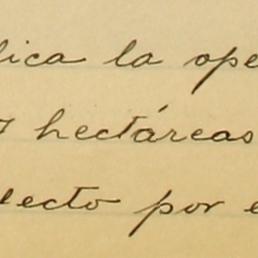 lica la ope
7 hectáreas
lecto por e